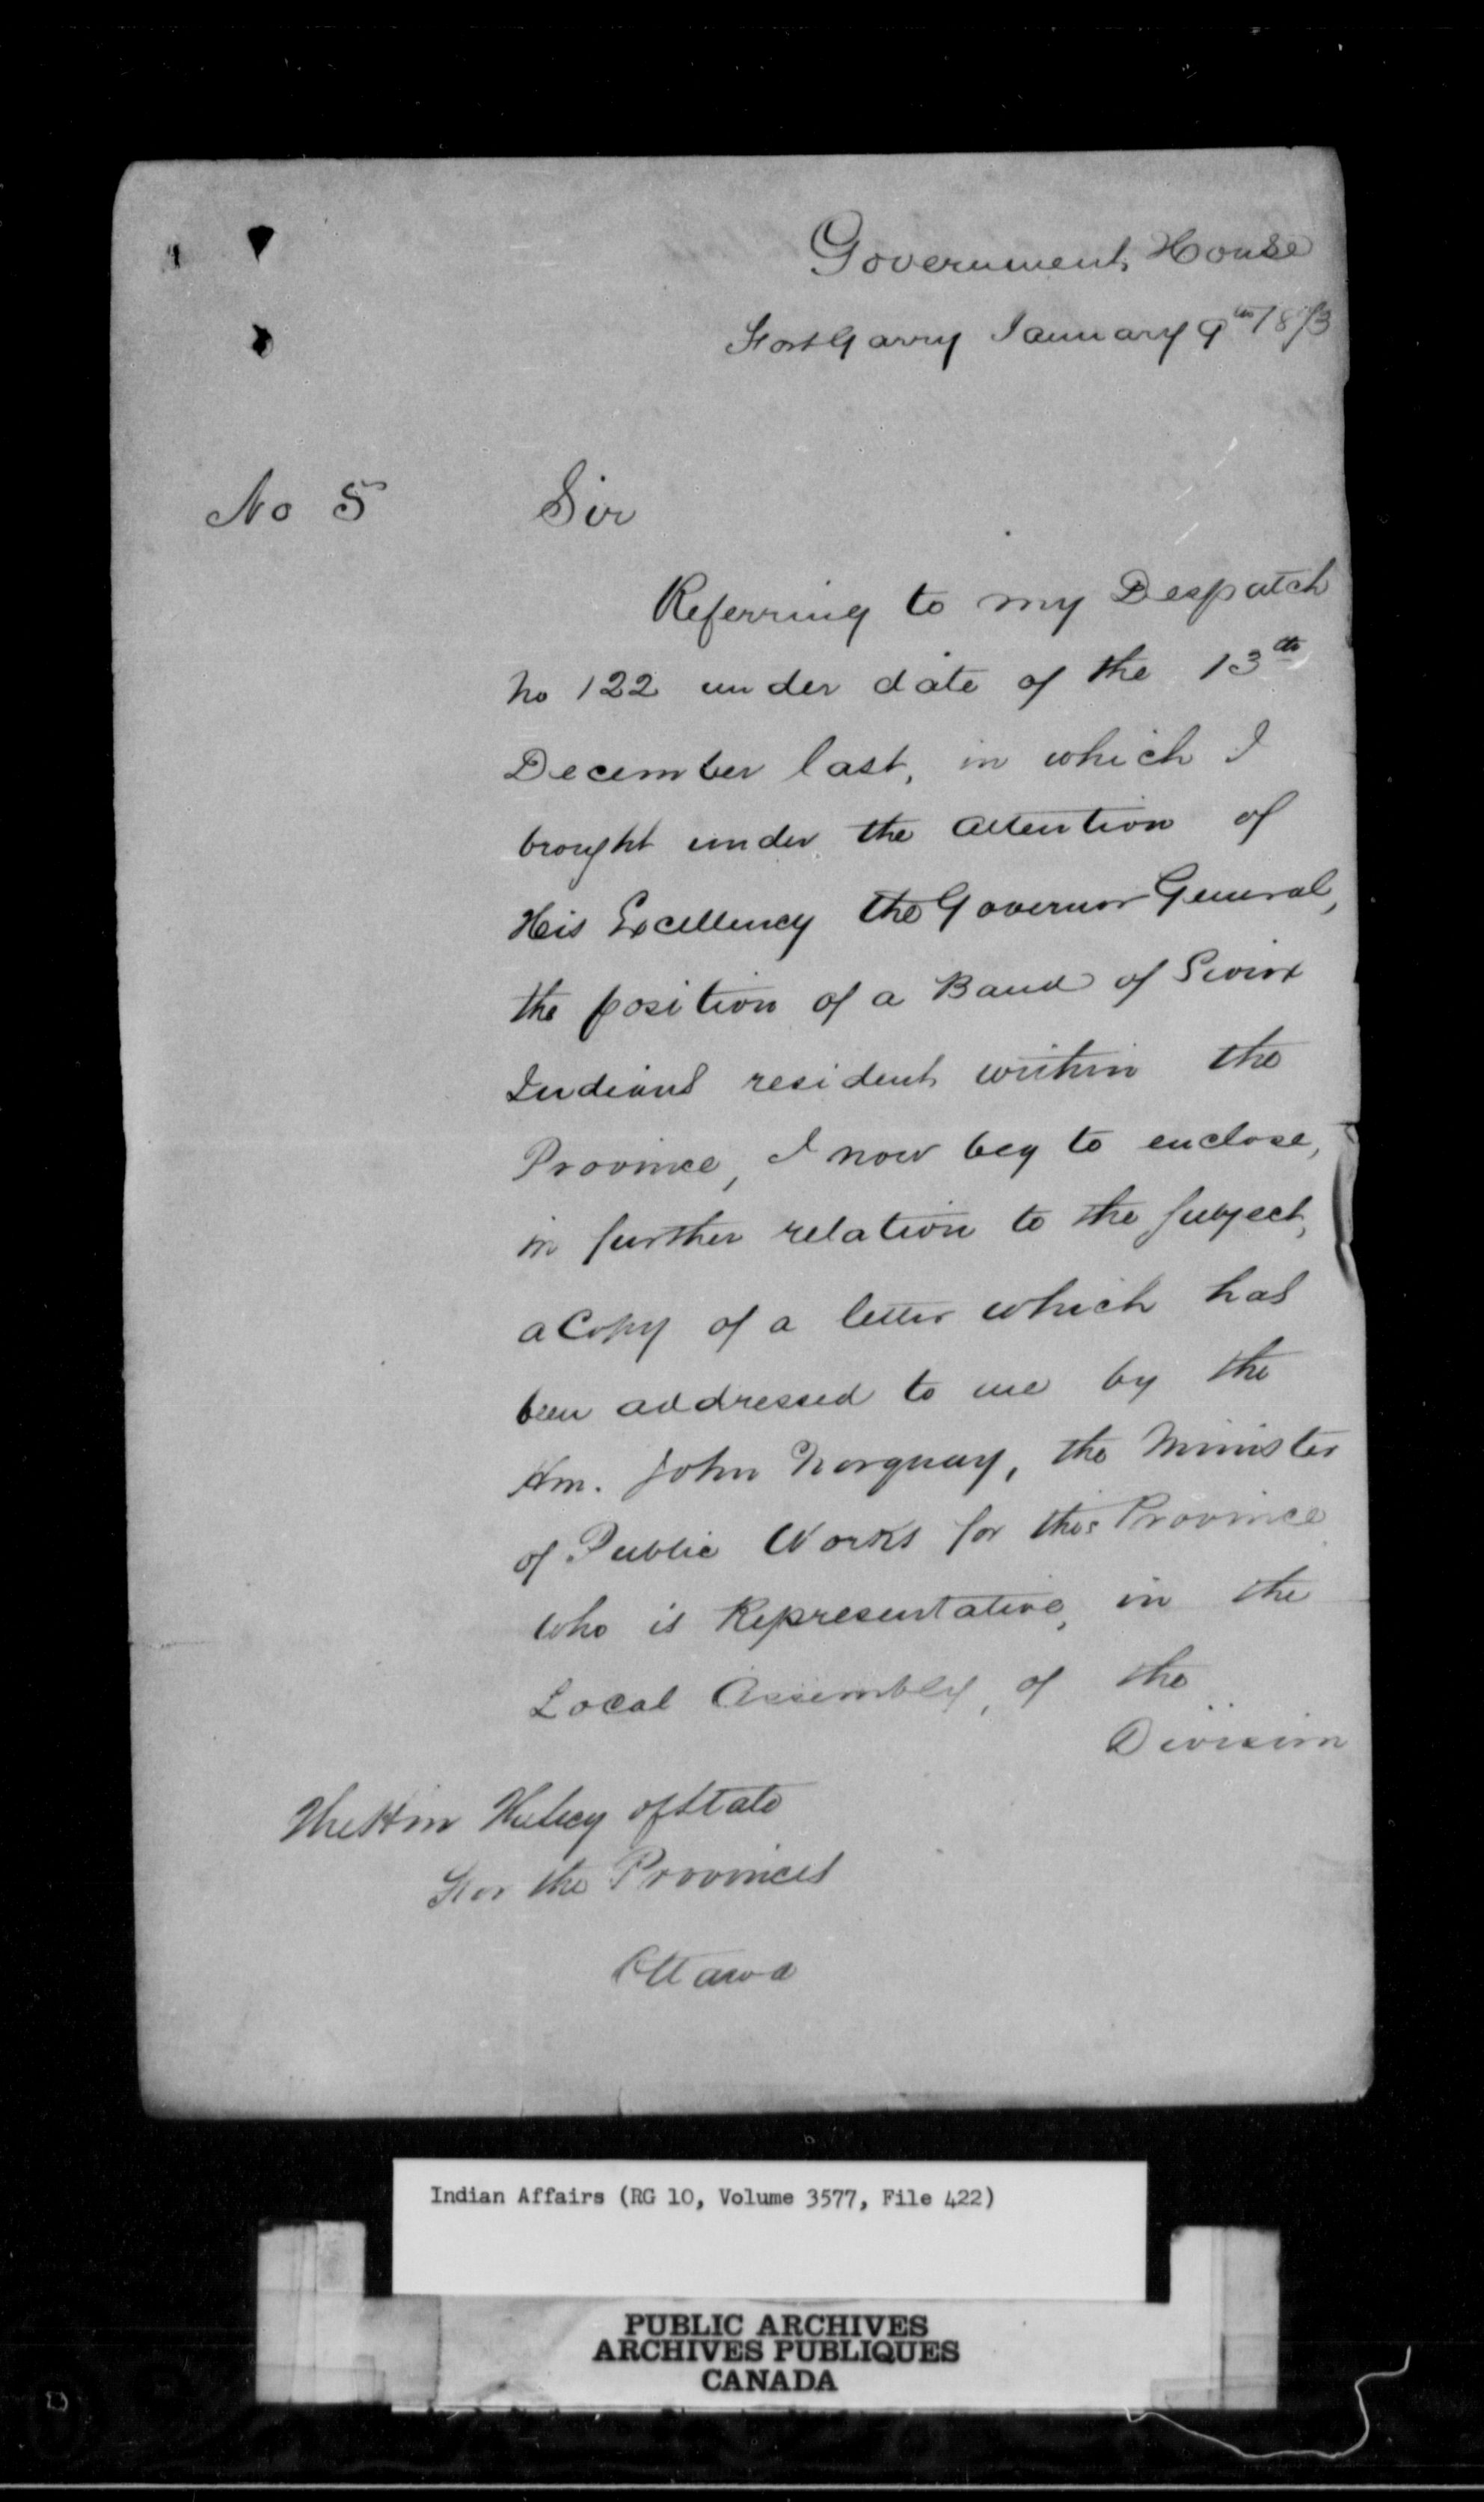 Government House
Fort Garry January 9th 1873
No 5
Sir
Referring to my Despatch
No 122 under date of the 13th
December last, in which I
brought under the attention of
His Excellency the Governor General,
the position of a Band of Sioux
Indians resident within the
Province, I now beg to enclose,
in further relation to the subject,
a Copy of a letter which has
been addressed to me by the
Hon. John Norquay, the Minister
of Public Works for this Province
who is Representative, in the
Local Assembly, of the
Division
The Hon of State
For the Provinces
Ottawa
Indian Affairs (RG 10, Volume 3577, File 422)
PUBLIC ARCHIVES
ARCHIVES PUBLIQUES
CANADA